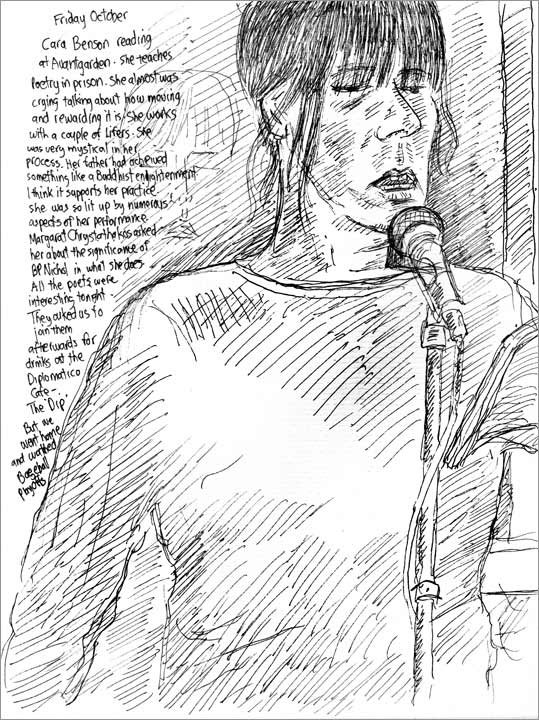 Friday October
Cara Benson reading
at Avantgarden. She teaches
Poetry in prison. She almost was
crying talking about how moving
and rewarding it is. She works
with a couple of lifers. She
was very mystical in her
process. Her father had achieved
something like a Buddhist enlightenment
I think it supports her practice
she was so lit up by numerous
aspects of her performance.
Margaret Christakos asked
her about the significance of
BP Nichol in what she does.
All the poets were
interesting tonight.
They asked us to
join them
afterwards for
drinks at the
Diplomatico
Cafe -
The 'Dip'.
But we
went home
and watched
Baseball
Playoffs